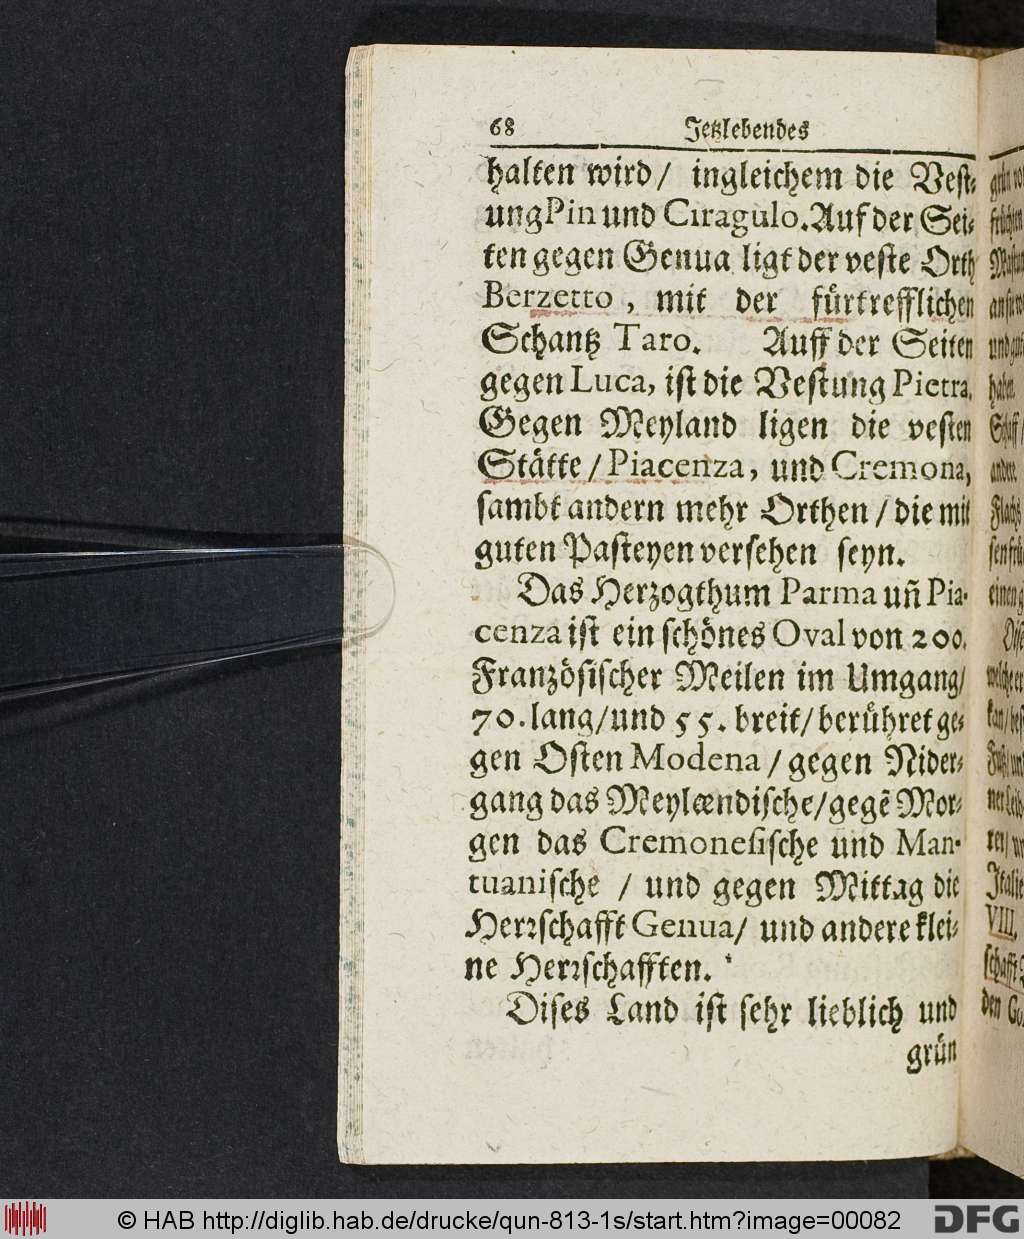 68 Jetzlebendes
halten wird/ ingleichem die Vest-
ung Pin und Ciragulo. Auf der Sei-
ten gegen Genua ligt der veste Orth
Berzetto, mit der fürtrefflichen
Schantz Taro. Auff der Seiten
gegen Luca, ist die Vestung Pietra.
Gegen Meyland ligen die vesten
Stätte/ Piacenza, und Cremona,
sambt andern mehr Orthen/ die mit
guten Pasteyen versehen seyn.
Das Herzogthum Parma uñ Pia-
cenza ist ein schönes Oval von 200.
Französischer Meilen im Umgang/
70. lang/ und 55. breit/ berühret ge-
gen Osten Modena/ gegen Nider-
gang das Meylœndische/ gegẽ Mor-
gen das Cremonesische und Man-
tuanische / und gegen Mittag die
Herrschafft Genua/ und andere klei-
ne Herrschafften.
Dises Land ist sehr lieblich und
grün
VIII.
© HAB http://diglib.hab.de/drucke/qun-813-1s/start.htm?image=00082
DFG